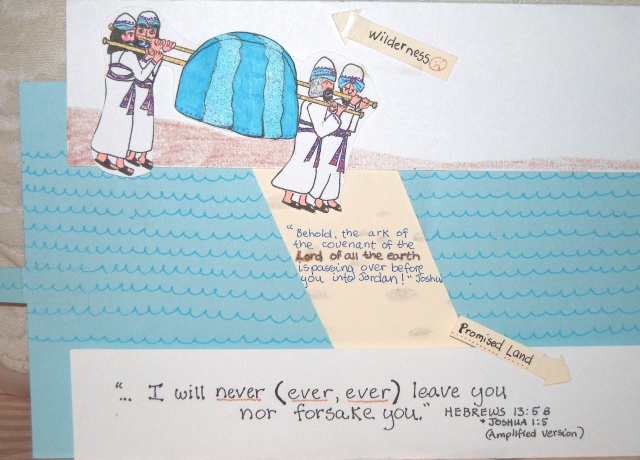 Wilderness
"Behold, the ark of
the covenant of the
Lord of all the earth
is passing over before
you into Jordan!" Joshu
Promised Land
"... I will never (ever, ever) leave you
nor forsake you." HEBREWS 13:5B
+ JOSHUA 1:5
(Amplified Version)